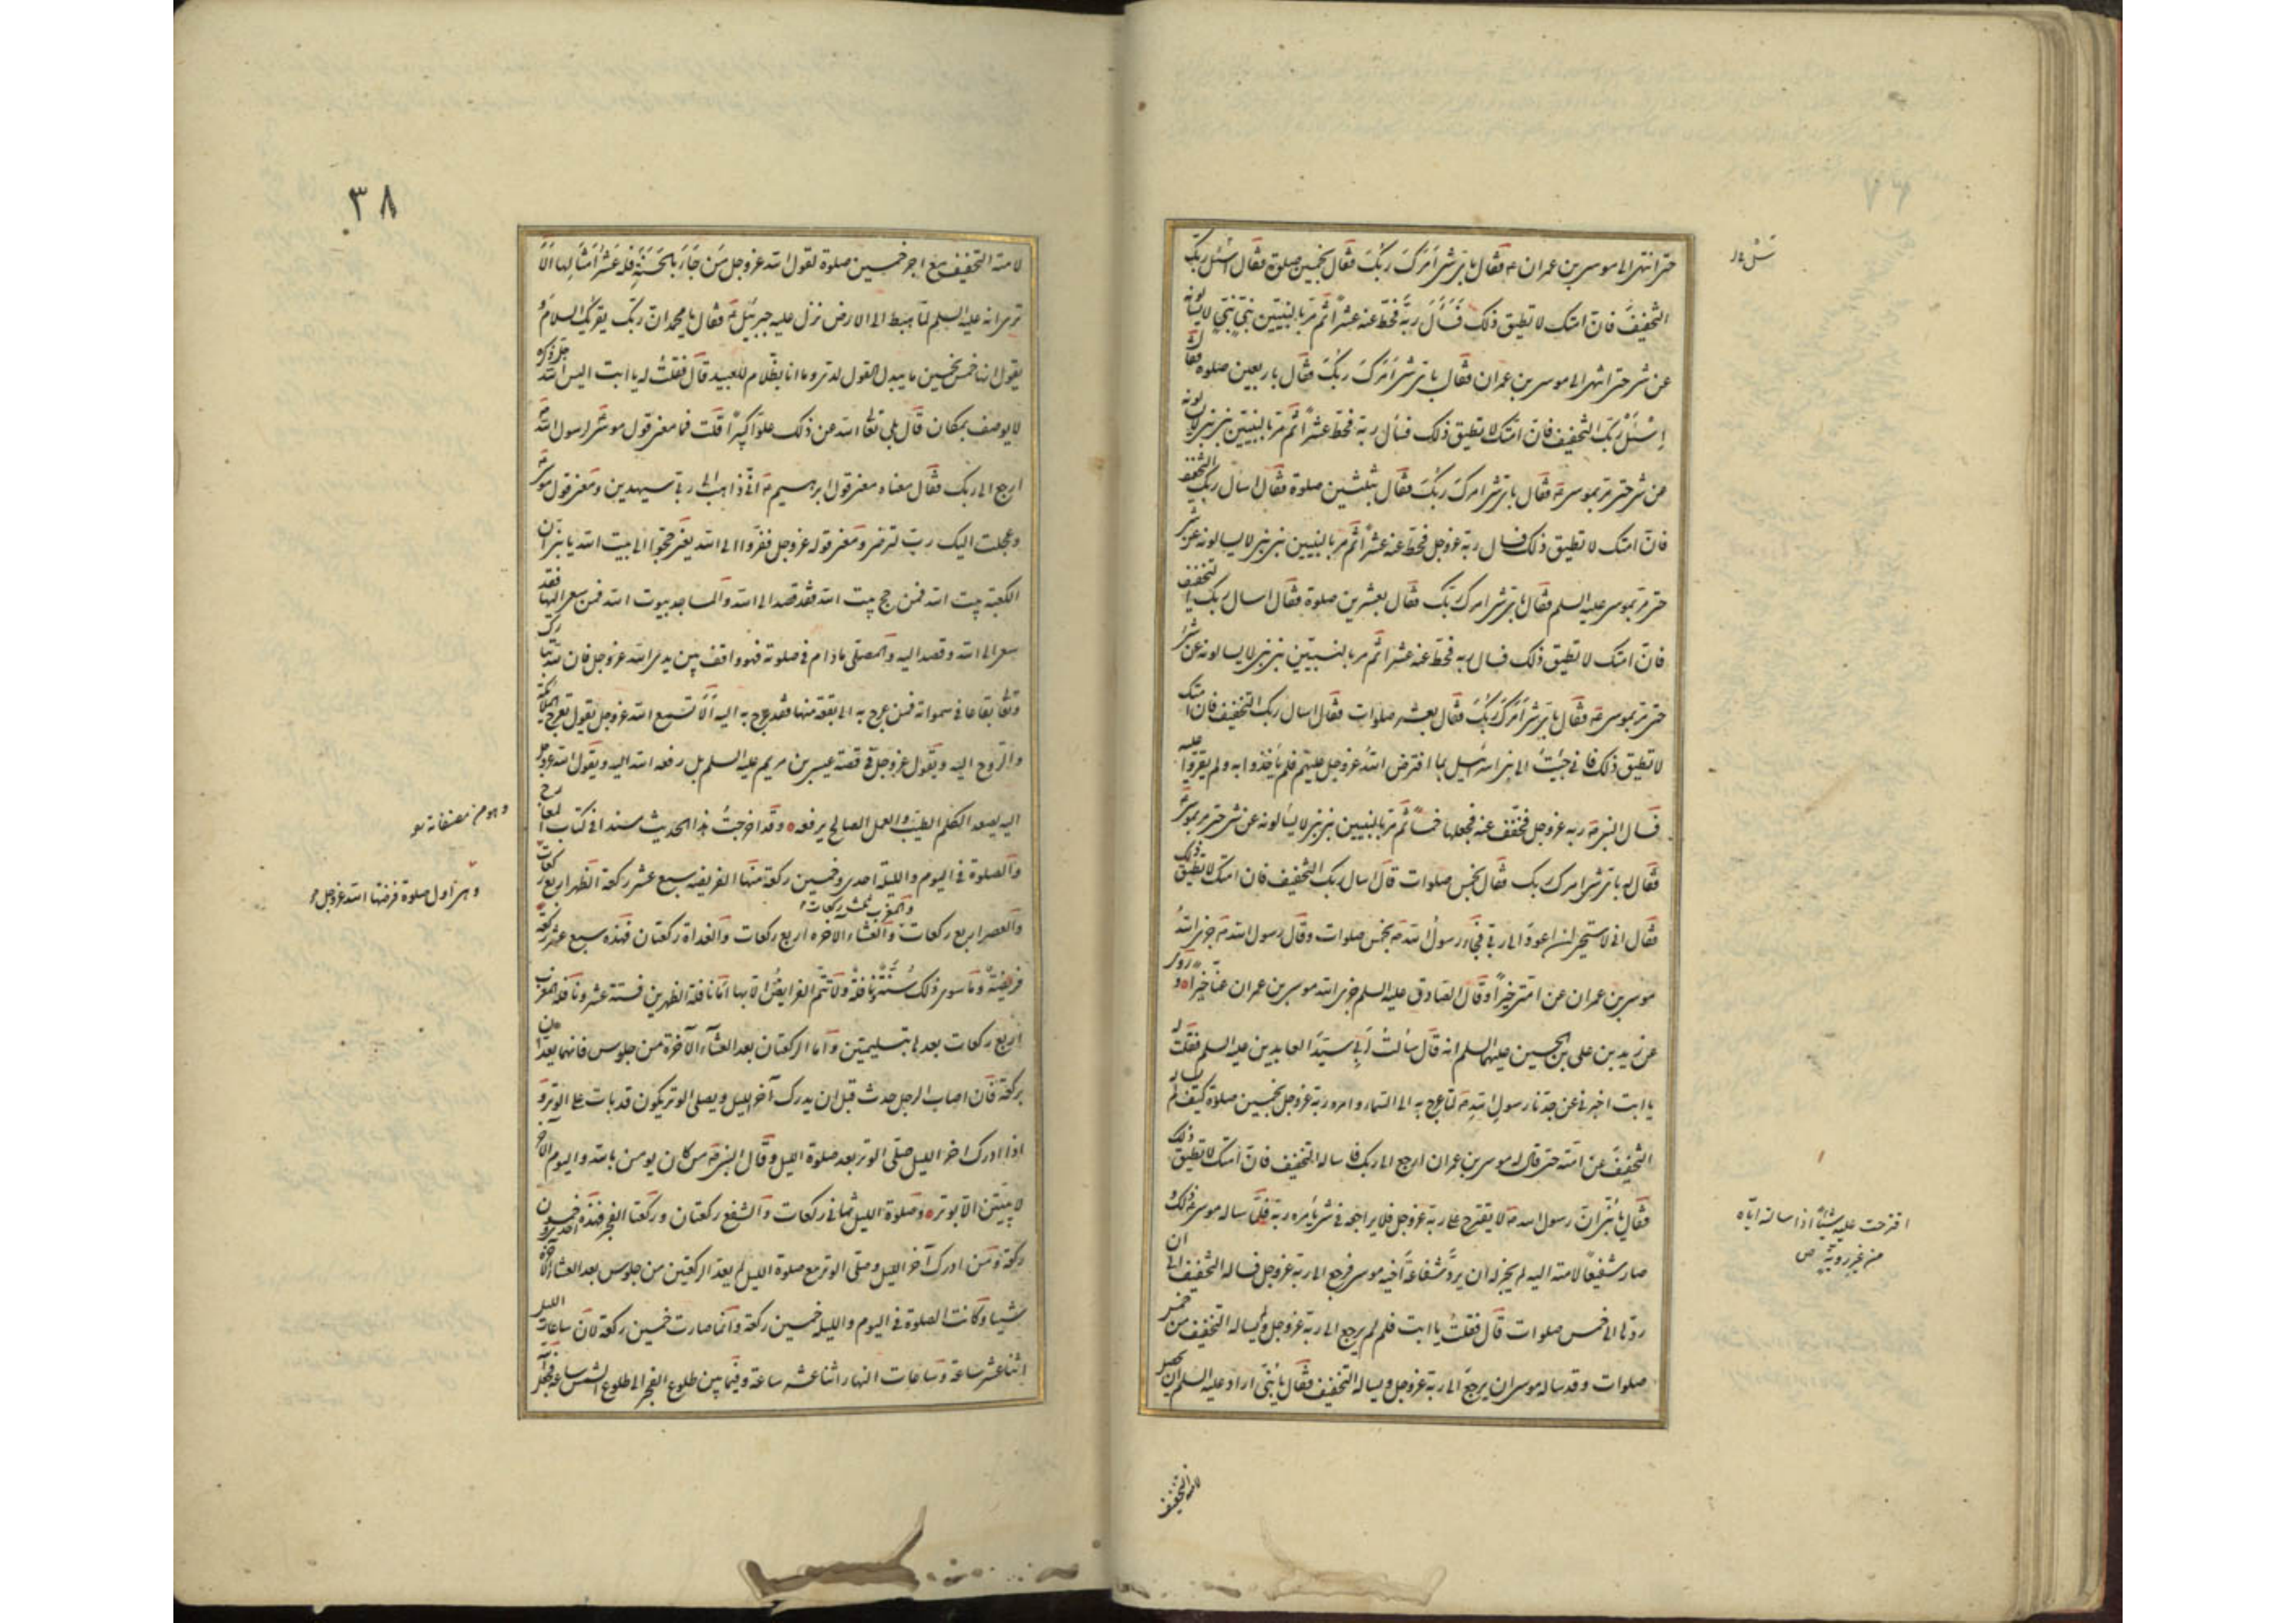 حتى انتهى الى موسى بن عمران ع فقال باى شئ امرك ربك فقال بخمسين صلوة فقال اسئل ربك
التخفيف فان امتك لا تطيق ذلك فسأل ربه فحط عنه عشرا ثم مر بالنبيين نبى نبى لا يسالونه
عن شئ حتى انتهى الى موسى بن عمران فقال باى شئ امرك ربك فقال باربعين صلوة فقال
اسئل ربك التخفيف فان امتك لا تطيق ذلك فسأل ربه فحط عشرا ثم مر بالنبيين نبى نبى لا يسالونه
عن شئ حتى مر بموسى ع فقال باى شئ امرك ربك فقال بثلثين صلوة فقال اسأل ربك التخفيف
فان امتك لا تطيق ذلك فسال ربه عز وجل فحط عنه عشرا ثم مر بالنبيين نبى نبى لا يسالونه عن شئ
حتى مر بموسى عليه السلم فقال باى شئ امرك ربك فقال بعشرين صلوة فقال اسال ربك التخفيف
فان امتك لا تطيق ذلك فسال ربه فحط عنه عشرا ثم مر بالنبيين نبى نبى لا يسالونه عن شئ
حتى مر بموسى ع فقال باى شئ امرك ربك فقال بعشر صلوات فقال اسال ربك التخفيف فان امتك
لا تطيق ذلك فانى جئت الى بنى اسرائيل بما افترض الله عز وجل عليهم فلم ياخذوا به ولم يقروا عليه
فسال النبى ص ربه عز وجل فخفف عنه فجعلها خمسا ثم مر بالنبيين نبى نبى لا يسالونه عن شئ حتى مر بموسى
فقال له باى شئ امرك ربك فقال بخمس صلوات قال اسال ربك التخفيف فان امتك لا تطيق ذلك
فقال انى لاستحيى ان اعود الى ربى فجاء رسول الله ص بخمس صلوات وقال رسول الله ص جزى الله
موسى بن عمران عن امتى خيرا وقال الصادق عليه السلم جزى الله موسى بن عمران عنا خيرا وروى
عن زيد بن على بن الحسين عليهما السلم انه قال سألت ابى سيد العابدين عليه السلم فقلت له
يا ابت اخبرنى عن جدنا رسول الله ص لما عرج به الى السماء وامره ربه عز وجل بخمسين صلوة كيف لم يساله
التخفيف عن امته حتى قال له موسى بن عمران ارجع الى ربك فاساله التخفيف فان امتك لا تطيق ذلك
فقال يا بنى ان رسول الله ص لا يقترح على ربه عز وجل فلا يراجعه فى شئ يامره به فلما ساله موسى ع ذلك و
صار شفيعا لامته اليه لم يجز له ان يرد شفاعة اخيه موسى فرجع الى ربه عز وجل فساله التخفيف الى ان
ردها الى خمس صلوات قال فقلت يا ابت فلم لم يرجع الى ربه عز وجل ولم يساله التخفيف من خمس
صلوات وقد ساله موسى ان يرجع الى ربه عز وجل ويساله التخفيف فقال يا بنى اراد عليه السلم ان يحصل
اقترحت عليه شيئا اذا سالته اياه
من غير روية ص
لامته التخفيف
٣٨
لامته التخفيف مع اجر خمسين صلوة لقول الله عز وجل من جاء بالحسنة فله عشر امثالها الا
ترى انه عليه السلم لما هبط الى الارض نزل عليه جبرئيل ع فقال يا محمد ان ربك يقرئك السلام
يقول انها خمس بخمسين ما يبدل القول لدى وما انا بظلام للعبيد قال فقلت له يا ابت اليس الله جل ذكره
لا يوصف بمكان قال بلى تعالى الله عن ذلك علوا كبيرا قلت فما معنى قول موسى ع لرسول الله ص
ارجع الى ربك فقال معناه معنى قول ابرهيم ع انى ذاهب الى ربى سيهدين ومعنى قول موسى ع
وعجلت اليك رب لترضى ومعنى قوله عز وجل ففروا الى الله يعنى حجوا الى بيت الله يا بنى ان
الكعبة بيت الله فمن حج بيت الله فقد قصد الى الله والمساجد بيوت الله فمن سعى اليها فقد
سعى الى الله وقصد اليه والمصلى ما دام فى صلوته فهو واقف بين يدى الله عز وجل فان لله تبارك
وتعالى بقاعا فى سمواته فمن عرج به الى بقعة منها فقد عرج به اليه الا تسمع الله عز وجل يقول تعرج الملائكة
والروح اليه ويقول عز وجل فى قصة عيسى بن مريم عليه السلم بل رفعه الله اليه ويقول الله عز وجل
اليه يصعد الكلم الطيب والعمل الصالح يرفعه وقد اخرجت هذا الحديث مسندا فى كتاب المعارج
والصلوة فى اليوم والليلة احدى وخمسين ركعة منها الفريضة سبع عشر ركعة الظهر اربع ركعات
والعصر اربع ركعات والمغرب ثلث ركعات والعشاء الاخرة اربع ركعات والغداة ركعتان فهذه سبع عشر ركعة
فريضة وما سوى ذلك سنة ونافلة ولا تتم الفرايض الا بها اما نافلة الظهرين فستة عشر ونافلة المغرب
اربع ركعات بعدها بتسليمتين واما الركعتان بعد العشاء الآخرة من جلوس فانهما تعدان
بركعة فان اصاب الرجل حدث قبل ان يدرك آخر الليل ويصلى الوتر يكون قد بات على الوتر و
اذا ادرك اخر الليل صلى الوتر بعد صلوة الليل وقال النبى ص من كان يومن بالله واليوم الآخر
لا يبيتن الا بوتر وصلوة الليل ثمانى ركعات والشفع ركعتان وركعتا الفجر فهذه احدى وخمسون
ركعة ومن ادرك آخر الليل وصلى الوتر مع صلوة الليل لم يعد الركعتين من جلوس بعد العشاء الآخرة
شيئا وكانت الصلوة فى اليوم والليلة خمسين ركعة وانما صارت خمسين ركعة لان ساعات الليل
اثنا عشر ساعة وساعات النهار اثنا عشر ساعة وفيما بين طلوع الفجر الى طلوع الشمس ساعة فجعل
وهو من مصنفاته
وهى اول صلوة فرضها الله عز وجل